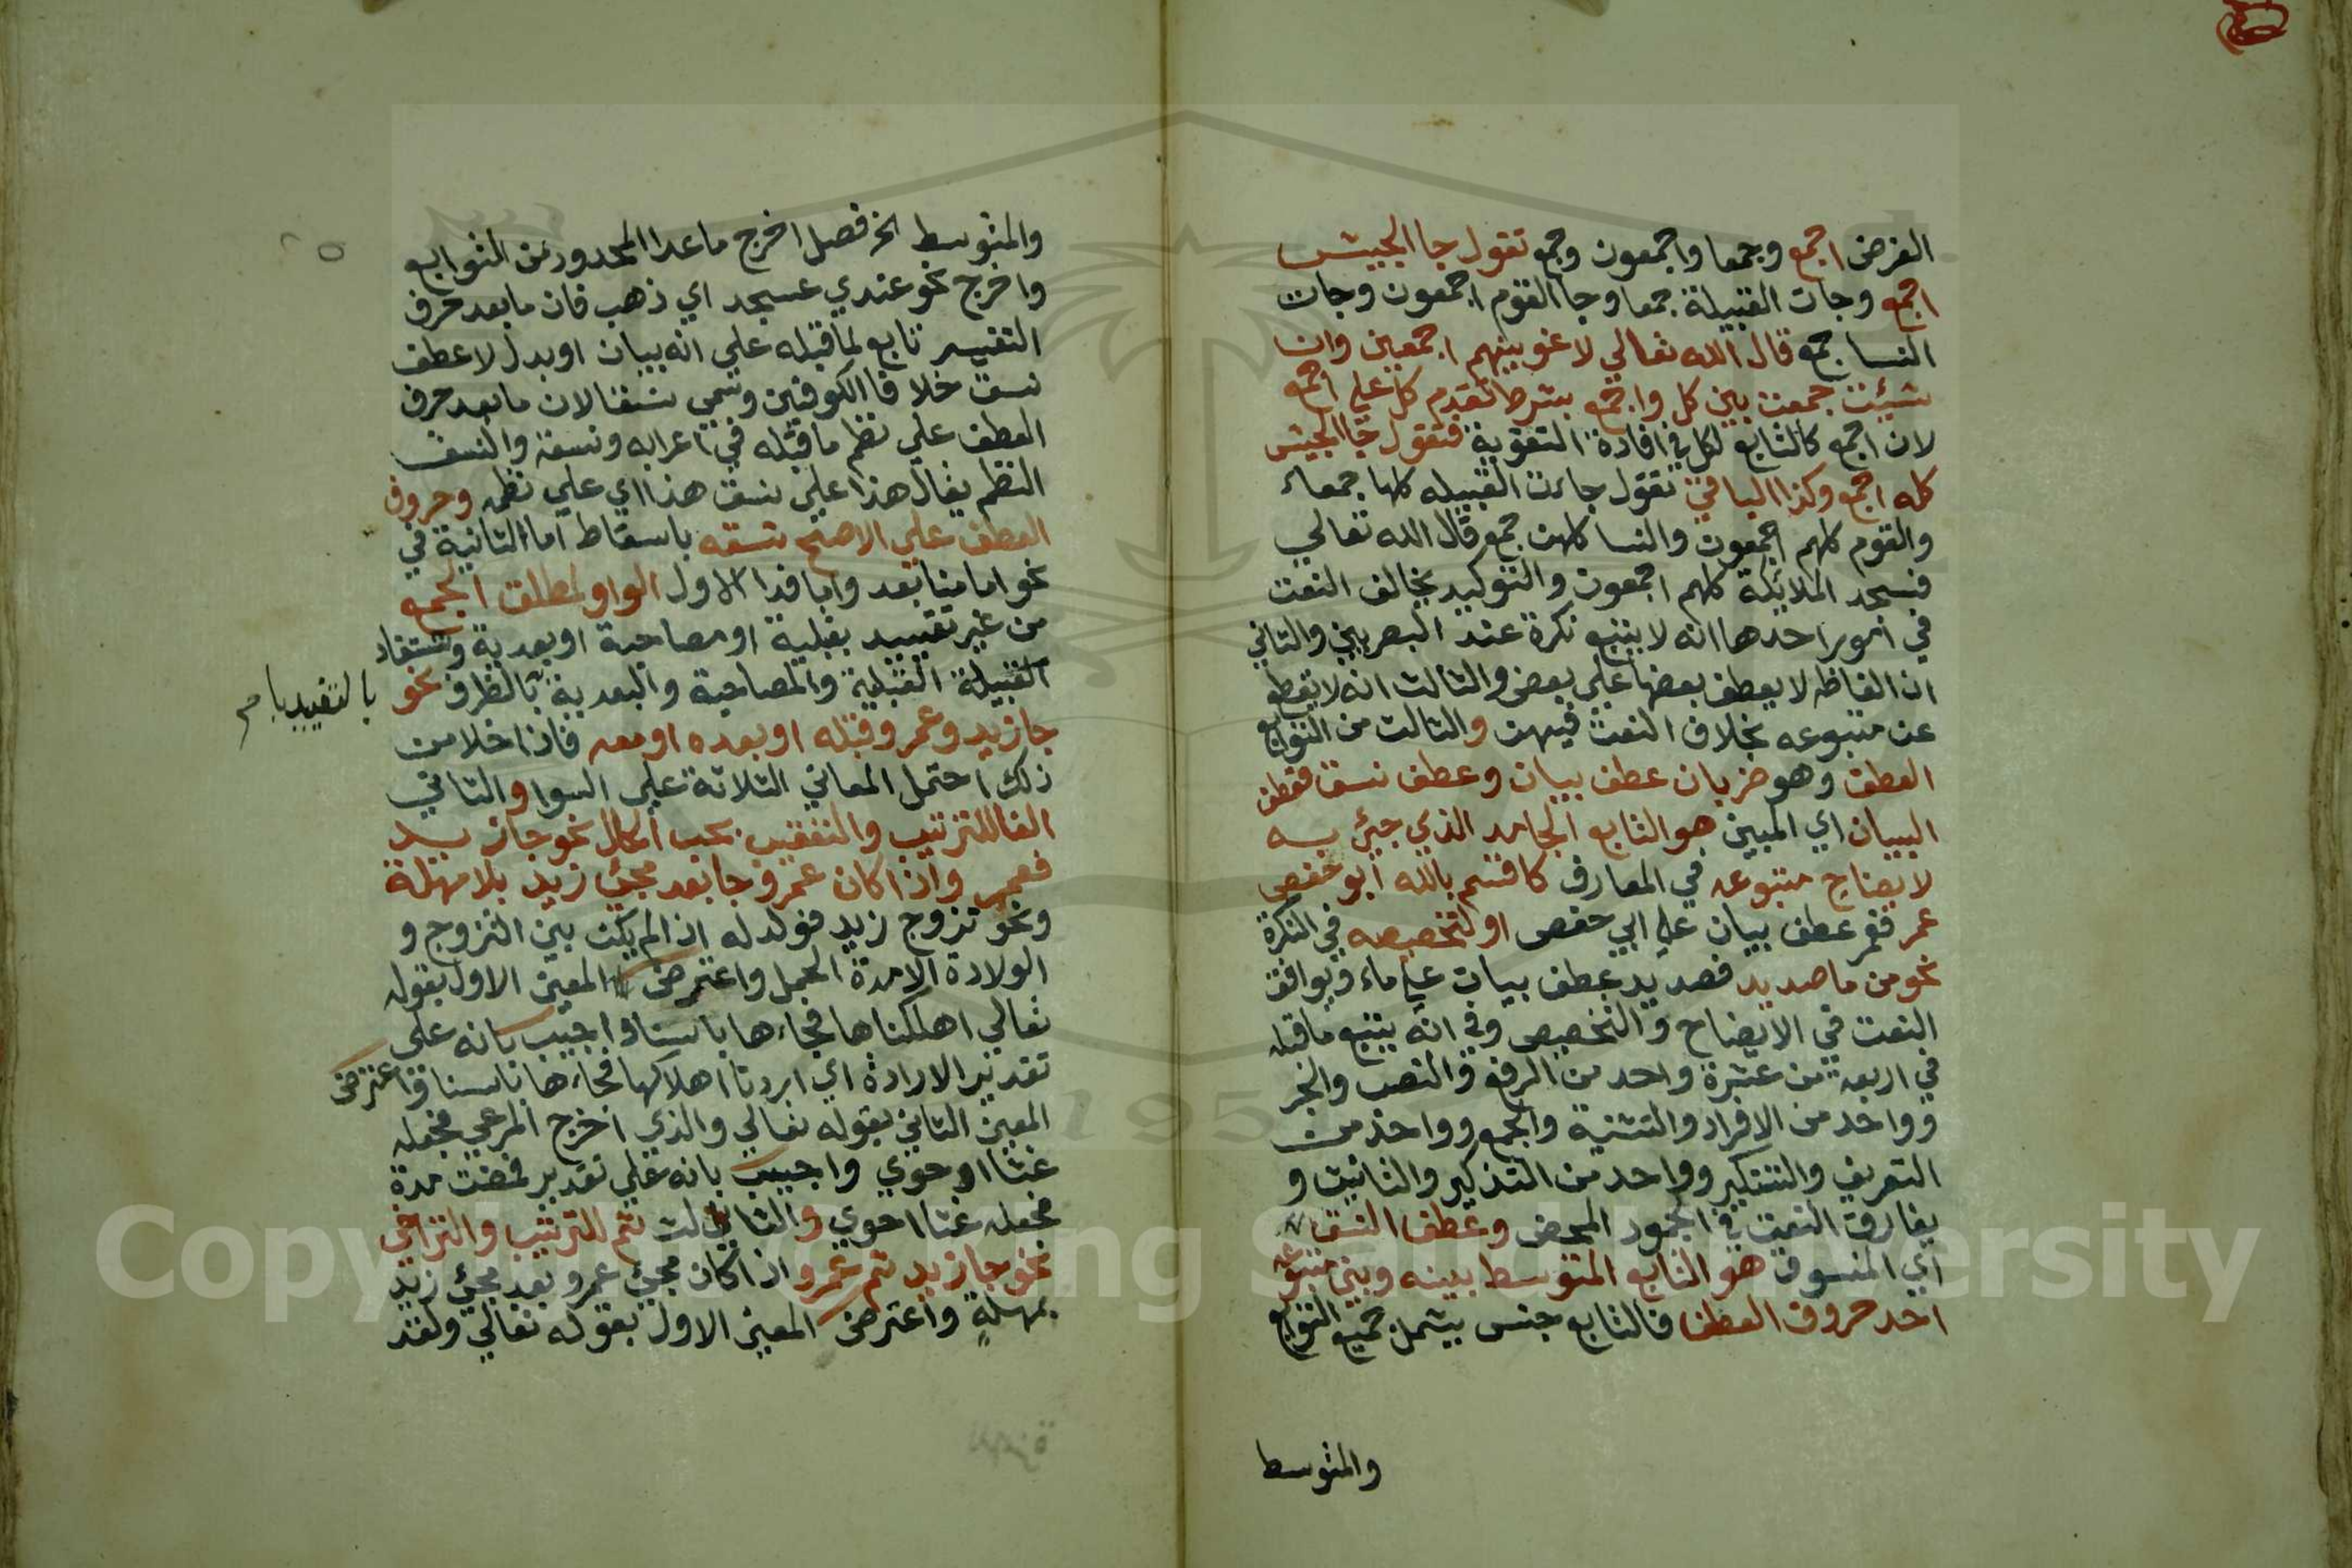 الغرض اجمع وجمعا واجمعون وجمع تقول جا الجيش
اجمع وجات القبيلة جمعا وجا القوم اجمعون وجات
النسا جمع قال الله تعالي لاغوينهم اجمعين وان
شيئت جمعت بين كل واجمع بشرط تقدم كل علي اجمع
لان اجمع كالتابع لكل في افادة التقوية فتقول جا الجيش
كله اجمع وكذا الباقي تقول جاءت القبيله كلها جمعاء
والقوم كلهم اجمعون والنسا كلهن جمع قال الله تعالي
فسجد الملائكة كلهم اجمعون والتوكيد يخالف النعت
في امور احدها انه لا يتبع نكرة عند البصريين والثاني
ان الفاظه لا يعطف بعضها علي بعض والثالث انه لا يقطع
عن متبوعه بخلاف النعت فيهن والثالث من التوابع
العطف وهو ضربان عطف بيان وعطف نسق فعطف
البيان اي المبين هو التابع الجامد الذي جيئ به
لايضاح متبوعه في المعارف كاقسم بالله ابو حفص
عمر فعمر عطف بيان علي ابي حفص او لتخصيصه في النكرة
نحو من ما صديد فصديد عطف بيان علي ماء ويوافق
النعت في الايضاح والتخصيص وفي انه يتبع ماقبله
في اربعة من عشرة واحد من الرفع والنصب والجر
وواحد من الافراد والتثنية والجمع وواحد من
التعريف والتنكير وواحد من التذكير والتانيث و
يفارق النعت في الجمود المحض وعطف النسق
اي المنسوق هو التابع المتوسط بينه وبين متبوعه
احد حروف العطف فالتابع جنس يشمل جميع التوابع
والمتوسط
والمتوسط الخ فصل اخرج ماعدا المحدود من التوابع
واخرج نحو عندي عسجد اي ذهب فان مابعد حرف
التفسير تابع لماقبله علي انه بيان او بدل لا عطف
نسق خلافا الكوفين وسمي نسقا لان مابعد حرف
العطف علي نظم ماقبله في اعرابه ونسقه والنسق
النظم يقال هذا علي نسق هذا اي علي نظمه وحروف
العطف علي الاصح تسعه باسقاط اما الثانية في
نحو اما منا بعد واما فدا الاول الواو لمطلق الجمع
من غير تقييد بقبلية او مصاحبة او بعدية وتستفاد
القبيلة القبلية والمصاحبة والبعدية بالظرف نحو
بالتقييد
جا زيد وعمرو قبله او بعده او معه فاذا خلا من
ذلك احتمل المعاني الثلاثة علي السوا والثاني
الفا للترتيب والتعقيب بحسب الحال نحو جا زيد
فعمرو واذا كان عمرو جا بعد مجيئ زيد بلا مهلة
ونحو تزوج زيد فولد له اذ الم يكن بين التزوج و
الولادة الا مدة الحمل واعترض المعين الاول بقوله
تعالي اهلكناها فجاءها باسنا واجيب بانه علي
تقدير الارادة اي اردنا اهلاكها فجاءها باسنا واعترض
المعين الثاني بقوله تعالي والذي اخرج المرعي فجعله
غثا احوي واجيب بانه علي تقدير فمضت مدة
فجعله غثا احوي والثالث ثم للترتيب والتراخي
نحو جا زيد ثم عمرو اذا كان مجيئ عمرو بعد مجيئ زيد
بمهلة واعترض المعين الاول بقوله تعالي ولقد
Copyright © King Saud University
195